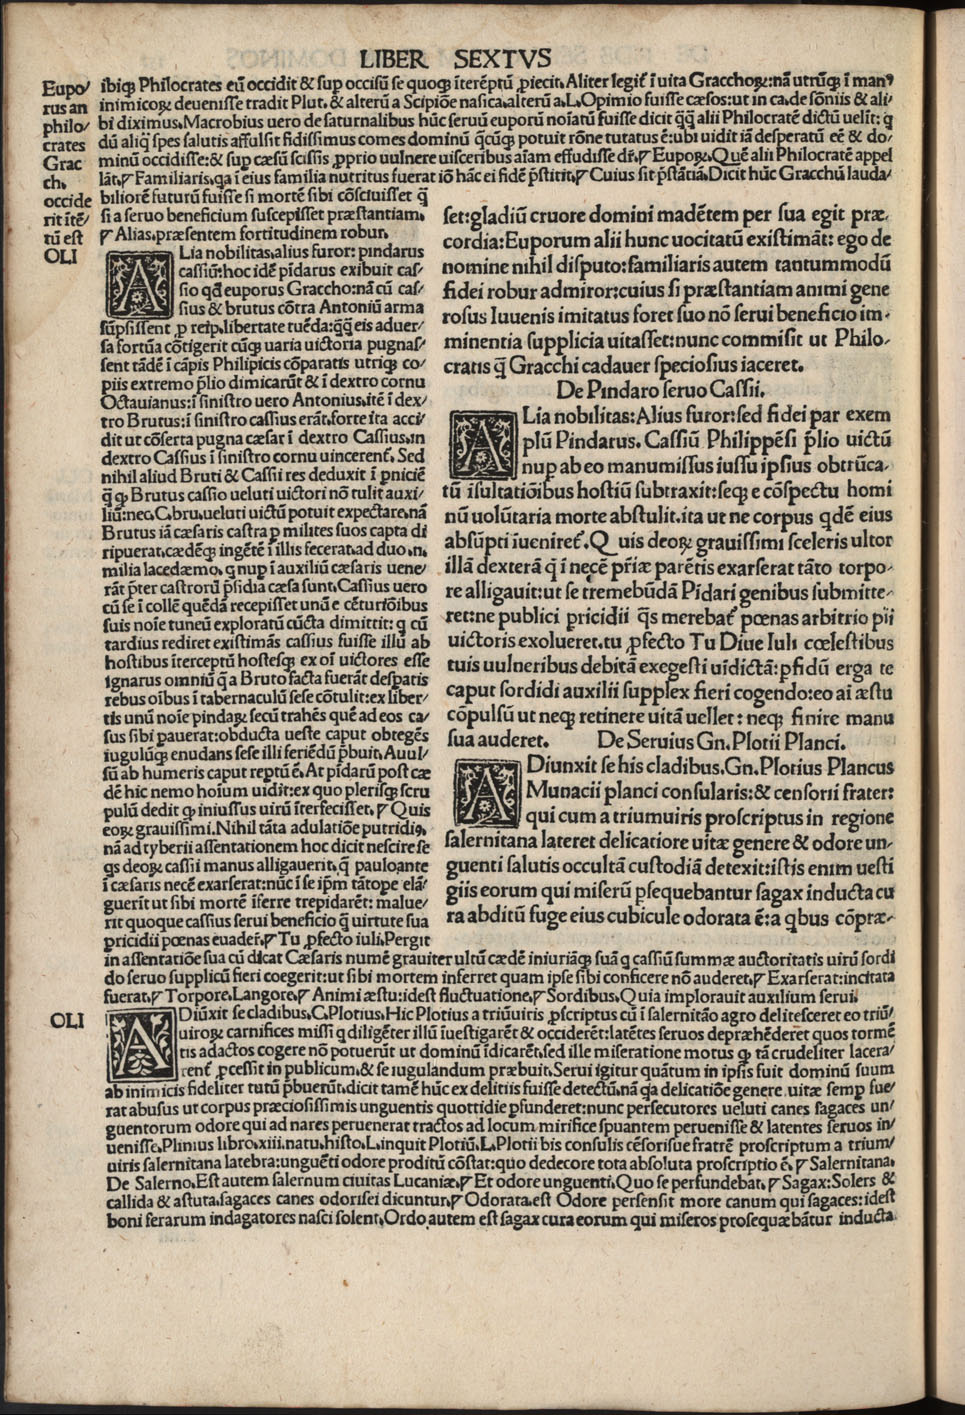 LIBER SEXTVS
Eupo/
rus an
philo/
crates
Grac
ch.
occide
rit ītē/
tū est
OLI
ibiq; Philocrates eū occidit & sup occisū se quoq; īterēptū ꝓiecit. Aliter legit᷑ ī uita Gracchoꝝ: nā utrūq; ī manꝰ
inimicoꝝ deuenisse tradit Plut. & alterū a Scipiōe nasica. alterū a. L. Opimio fuisse cæsos: ut in ca. de sōniis & ali/
bi diximus. Macrobius uero de saturnalibus hūc seruū euporū noīatū fuisse dicit q̄q̄ alii Philocratē dictū uelit: q
dū aliq̄ spes salutis affulsit fidissimus comes dominū q̄cūq; potuit rōne tutatus ē: ubi uidit iā desperatū eē & do/
minū occidisse: & sup cæsū scissis ꝓprio uulnere uisceribus aīam effudisse dr̄. ꝩ Eupoꝝ. Quē alii Philocratē appel
lāt. ꝩ Familiaris. qa ī eius familia nutritus fuerat iō hāc ei fidē p̄stitit. ꝩ Cuius sit p̄stātiā. Dicit hūc Gracchū lauda/
biliorē futurū fuisse si mortē sibi cōsciuisset q̄
si a seruo beneficium suscepisset præstantiam.
ꝩ Alias. præsentem fortitudinem robur.
ALia nobilitas. alius furor: pindarus
cassiū: hoc idē pīdarus exibuit cas/
sio qd̄ euporus Graccho: nā cū cas/
sius & brutus cōtra Antoniū arma
sūpsissent p reip. libertate tuēda: q̄q̄ eis aduer/
sa fortūa cōtigerit cūq; uaria uictoria pugnas/
sent tādē ī cāpis Philipicis cōparatis utriq; co/
piis extremo p̄lio dimicarūt & ī dextro cornu
Octauianus: ī sinistro uero Antonius. itē ī dex/
tro Brutus: ī sinistro cassius erāt. forte ita acci/
dit ut cōserta pugna cæsar ī dextro Cassius. in
dextro Cassius ī sinistro cornu uincerent᷑. Sed
nihil aliud Bruti & Cassii res deduxit ī pniciē
q̄ q; Brutus cassio ueluti uictori nō tulit auxi/
liū: nec. C. bru. ueluti uictū potuit expectare. nā
Brutus iā cæsaris castra p milites suos capta di
ripuerat. cædēq; ingētē ī illis fecerat. ad duo. n.
milia lacedæmo. q nup ī auxiliū cæsaris uene/
rāt p̄ter castrorū p̄sidia cæsa sunt. Cassius uero
cū se ī collē quēdā recepisset unū e cēturiōibus
suis noīe tuneū exploratū cūcta dimittit: q cū
tardius rediret existimās cassius fuisse illū ab
hostibus īterceptū hostesq; ex oī uictores esse
ignarus omniū q̄ a Bruto facta fuerāt despatis
rebus oībus ī tabernaculū sese cōtulit: ex liber/
tis unū noīe pindaꝝ secū trahēs quē ad eos ca/
sus sibi pauerat: obducta ueste caput obtegēs
iugulūq; enudans sese illi feriēdū p̄buit. Auul/
sū ab humeris caput reptū ē. At pīdarū post cæ
dē hic nemo hoīum uidit: ex quo plerisq; scru
pulū dedit q; iniussus uirū īterfecisset. ꝩ Quis
eoꝝ grauissimi. Nihil tāta adulatiōe putridiꝰ.
nā ad tyberii assentationem hoc dicit nescire se
qs deoꝝ cassii manus alligauerit. q̄ pauloante
ī cæsaris necē exarserat: nūc ī se ip̄m tātope elā/
guerīt ut sibi mortē īferre trepidarēt: malue/
rit quoque cassius serui beneficio q̄ uirtute sua
pricidii pœnas euader̄. ꝩ Tu ꝓfecto iuli. Pergit
in assentatiōe sua cū dicat Cæsaris numē grauiter ultū cædē iniuriāq; suā q cassiū summæ auctoritatis uirū sordi
do seruo supplicū fieri coegerit: ut sibi mortem inferret quam ipse sibi conficere nō auderet. ꝩ Exarserat: incitata
fuerat. ꝩ Torpore. Langore. ꝩ Animi æstu: idest fluctuatione. ꝩ Sordibus. Quia implorauit auxilium serui.
set: gladiū cruore domini madētem per sua egit præ-
cordia: Euporum alii hunc uocitatū existimāt: ego de
nomine nihil disputo: familiaris autem tantummodū
fidei robur admiror: cuius si præstantiam animi gene
rosus Iuuenis imitatus foret suo nō serui beneficio im-
minentia supplicia uitasset: nunc commisit ut Philo-
cratis q̄ Gracchi cadauer speciosius iaceret.
De Pindaro seruo Cassii.
ALia nobilitas: Alius furor: sed fidei par exem
plū Pindarus. Cassiū Philippēsi p̄lio uictū
nup ab eo manumissus iussu ipsius obtrūca-
tū īsultatiōibus hostiū subtraxit: seq; e cōspectu homi
nū uolūtaria morte abstulit. ita ut ne corpus qdē eius
absūpti īueniret᷑. Quis deoꝝ grauissimi sceleris ultor
illā dexterā q̄ ī necē pr̄iæ parētis exarserat tāto torpo-
re alligauit: ut se tremebūdā Pīdari genibus submitte-
ret: ne publici pricidii q̄s merebat᷑ pœnas arbitrio pii
uictoris exolueret. tu ꝓfecto Tu Diue Iuli cœlestibus
tuis uulneribus debitā exegesti uīdictā: pfidū erga te
caput sordidi auxilii supplex fieri cogendo: eo ai æstu
cōpulsū ut neq; retinere uitā uellet: neq; finire manu
sua auderet. De Seruius Gn. Plotii Planci.
ADiunxit se his cladibus. Gn. Plotius Plancus
Munacii planci consularis: & censorii frater:
qui cum a triumuiris proscriptus in regione
salernitana lateret delicatiore uitæ genere & odore un-
guenti salutis occultā custodiā detexit: istis enim uesti
giis eorum qui miserū psequebantur sagax inducta cu
ra abditū fuge eius cubicule odorata ē: a qbus cōpræ-
OLI
ADiūxit se cladibus. C. Plotius. Hic Plotius a triūuiris ꝓscriptus cū ī salernitāo agro delitesceret eo triū/
uiroꝝ carnifices missi q diligēter illū īuestigarēt & occiderēt: latētes seruos depræhēderet quos tormē
tis adactos cogere nō potuerūt ut dominū īdicarēt. sed ille miseratione motus q; tā crudeliter lacera/
rent᷑ ꝓcessit in publicum. & se iugulandum præbuit. Serui igitur quātum in ipsis fuit dominū suum
ab inimicis fideliter tutū p̄buerūt. dicit tamē hūc ex delitiis fuisse detectū. nā qa delicatiōe genere uitæ semp fue/
rat abusus ut corpus præciosissimis unguentis quottidie pfunderet: nunc persecutores ueluti canes sagaces un/
guentorum odore qui ad nares peruenerat tractos ad locum mirifice spuantem peruenisse & latentes seruos in/
uenisse. Plinius libro. xiii. natu. histo. L. inquit Plotiū. L. Plotii bis consulis cēsorisue fratrē proscriptum a trium/
uiris salernitana latebra: unguēti odore proditū cōstat: quo dedecore tota absoluta proscriptio ē. ꝩ Salernitana.
De Salerno. Est autem salernum ciuitas Lucaniæ. ꝩ Et odore unguenti. Quo se perfundebat. ꝩ Sagax: Solers &
callida & astuta. sagaces canes odorisei dicuntur. ꝩ Odorata. est Odore persensit more canum qui sagaces: idest
boni ferarum indagatores nasci solent. Ordo autem est sagax cura eorum qui miseros prosequæbātur inducta